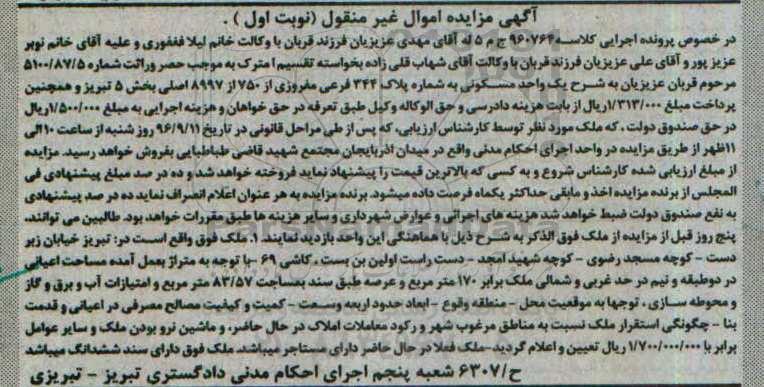 آگهی مزایده اموال غیر منقول (نوبت اول) .
در خصوص پرونده اجرایی کلاسه ۹۶۰۷۶۴ ج م ۵ له آقای مهدی عزیزیان فرزند قربان با وکالت خانم لیلا غفغوری و علیه آقای خانم نوبر
عزیز پور و آقای علی عزیزیان فرزند قربان با وکالت آقای شهاب قلی زاده بخواسته تقسیم ا مترک به موجب حصر وراثت شماره ۵۱۰۰/۸۷/۵
مرحوم قربان عزیزیان به شرح یک واحد مسکونی به شماره پلاک ۳۴۴ فرعی مفروزی از ۷۵۰ از ۸۹۹۷ اصلی بخش ۵ تبریز و همچنین
پرداخت مبلغ ۱/۳۱۳/۰۰۰ریال از بابت هزینه دادرسی و حق الوکاله وکیل طبق تعرفه در حق خواهان و هزینه اجرایی به مبلغ ۱/۵۰۰/۰۰۰ریال
در حق صندوق دولت ، که ملک مورد نظر توسط کارشناس ارزیابی، که پس از طی مراحل قانونی در تاریخ ۹۶/۹/۱۱ روز شنبه از ساعت ۱۰الی
۱۱ظهر از طریق مزایده در واحد اجرای احکام مدنی واقع در میدان آذربایجان مجتمع شهید قاضی طباطبایی بفروش خواهد رسید. مزایده
از مبلغ ارزیابی شده کارشناس شروع و به کسی که بالاترین قیمت را پیشنهاد نماید فروخته خواهد شد و ده در صد مبلغ پیشنهادی فی
المجلس از برنده مزایده اخذ و مابقی حداکثر یکماه فرصت داده میشود. برنده مزایده به هر عنوان اعلام انصراف نماید ده در صد پیشنهادی
به نفع صندوق دولت ضبط خواهد شد هزینه های اجرائی و عوارض شهرداری و سایر هزینه ها طبق مقررات خواهد بود. طالبین می توانند،
پنج روز قبل از مزایده از ملک فوق الذکر به شرح ذیل با هماهنگی این واحد بازدید نمایند. ۱. ملک فوق واقع است در: تبریز خیابان زبر
دست - کوچه مسجد رضوی - کوچه شهید امجد - دست راست اولین بن بست ، کاشی ۶۹ -با توجه به متراژ بعمل آمده مساحت اعیانی
در دوطبقه و نیم در حد غربی و شمالی ملک برابر ۱۷۰ متر مربع و عرصه طبق سند بمساحت ۸۳/۵۷ متر مربع و امتیازات آب و برق و گاز
و محوطه سازی ، توجها به موقعیت محل - منطقه وقوع - ابعاد حدود اربعه وسعت - کمیت و کیفیت مصالح مصرفی در اعیانی و قدمت
بنا - چگونگی استقرار ملک نسبت به مناطق مرغوب شهر و رکود معاملات املاک در حال حاضر، و ماشین نرو بودن ملک و سایر عوامل
برابر با ۱/۷۰۰/۰۰۰/۰۰۰ ریال تعیین و اعلام گردید -ملک فعلا در حال حاضر دارای مستاجر میباشد. ملک فوق دارای سند ششدانگ میباشد
ح/۶۳۰۷ شعبه پنجم اجرای احکام مدنی دادگستری تبریز - تبریزی